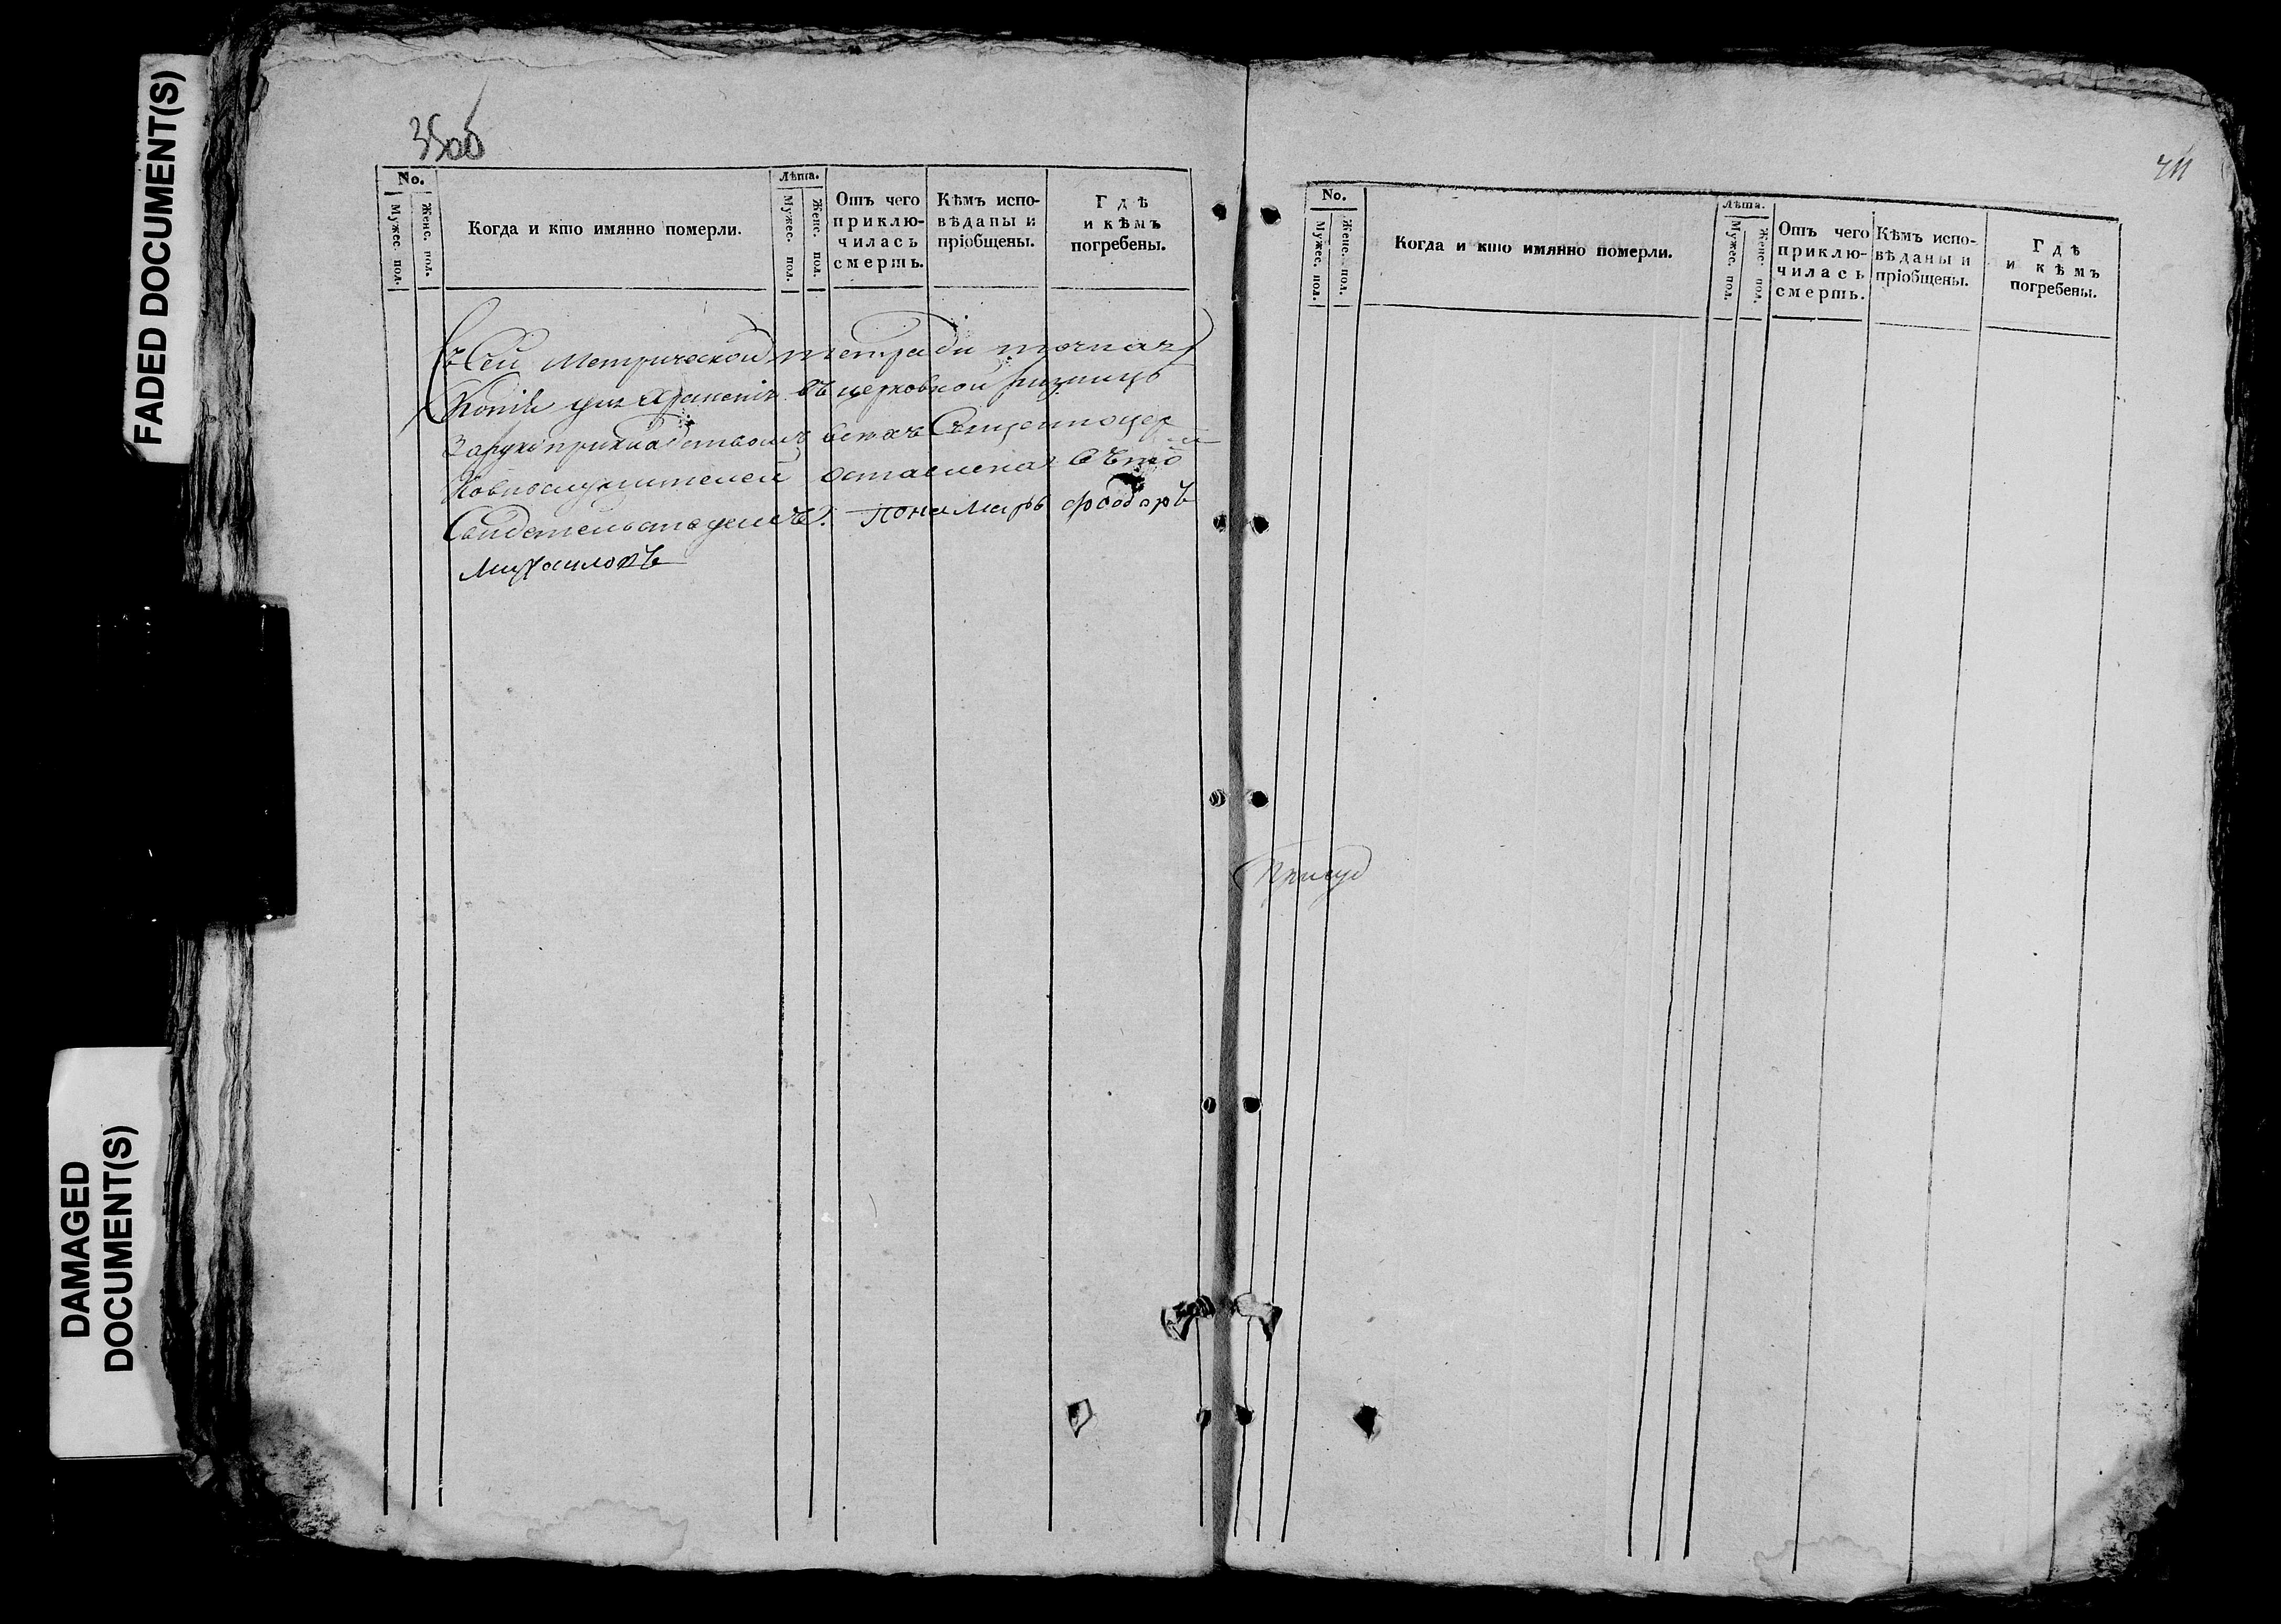 FADED DOCUMENT(S)
DAMAGED
DOCUMENT(S)
35об
No.
Мужес. пол.
Женс. пол.
Когда и кто имянно померли.
Лѣта.
Мужес. пол.
Женс. пол.
Отъ чего
приклю-
чилась
смерть.
Кѣмъ испо-
вѣданы и
пріобщены.
Гдѣ
и кѣмъ
погребены.
Съ Сей Метрической тетради точная
Копія для храненія въ церковной ризницѣ
За рукоприкладствомъ всехъ Священноцер
ковнослужителей оставлена въ томъ
Свидетельствуемъ: Пономарь Феодоръ
Михаиловъ
No.
Мужес. пол.
Женс. пол.
Когда и кто имянно померли.
Лѣта.
Мужес. пол.
Женс. пол.
Отъ чего
приклю-
чилась
смерть.
Кѣмъ испо-
вѣданы и
пріобщены.
Гдѣ
и кѣмъ
погребены.